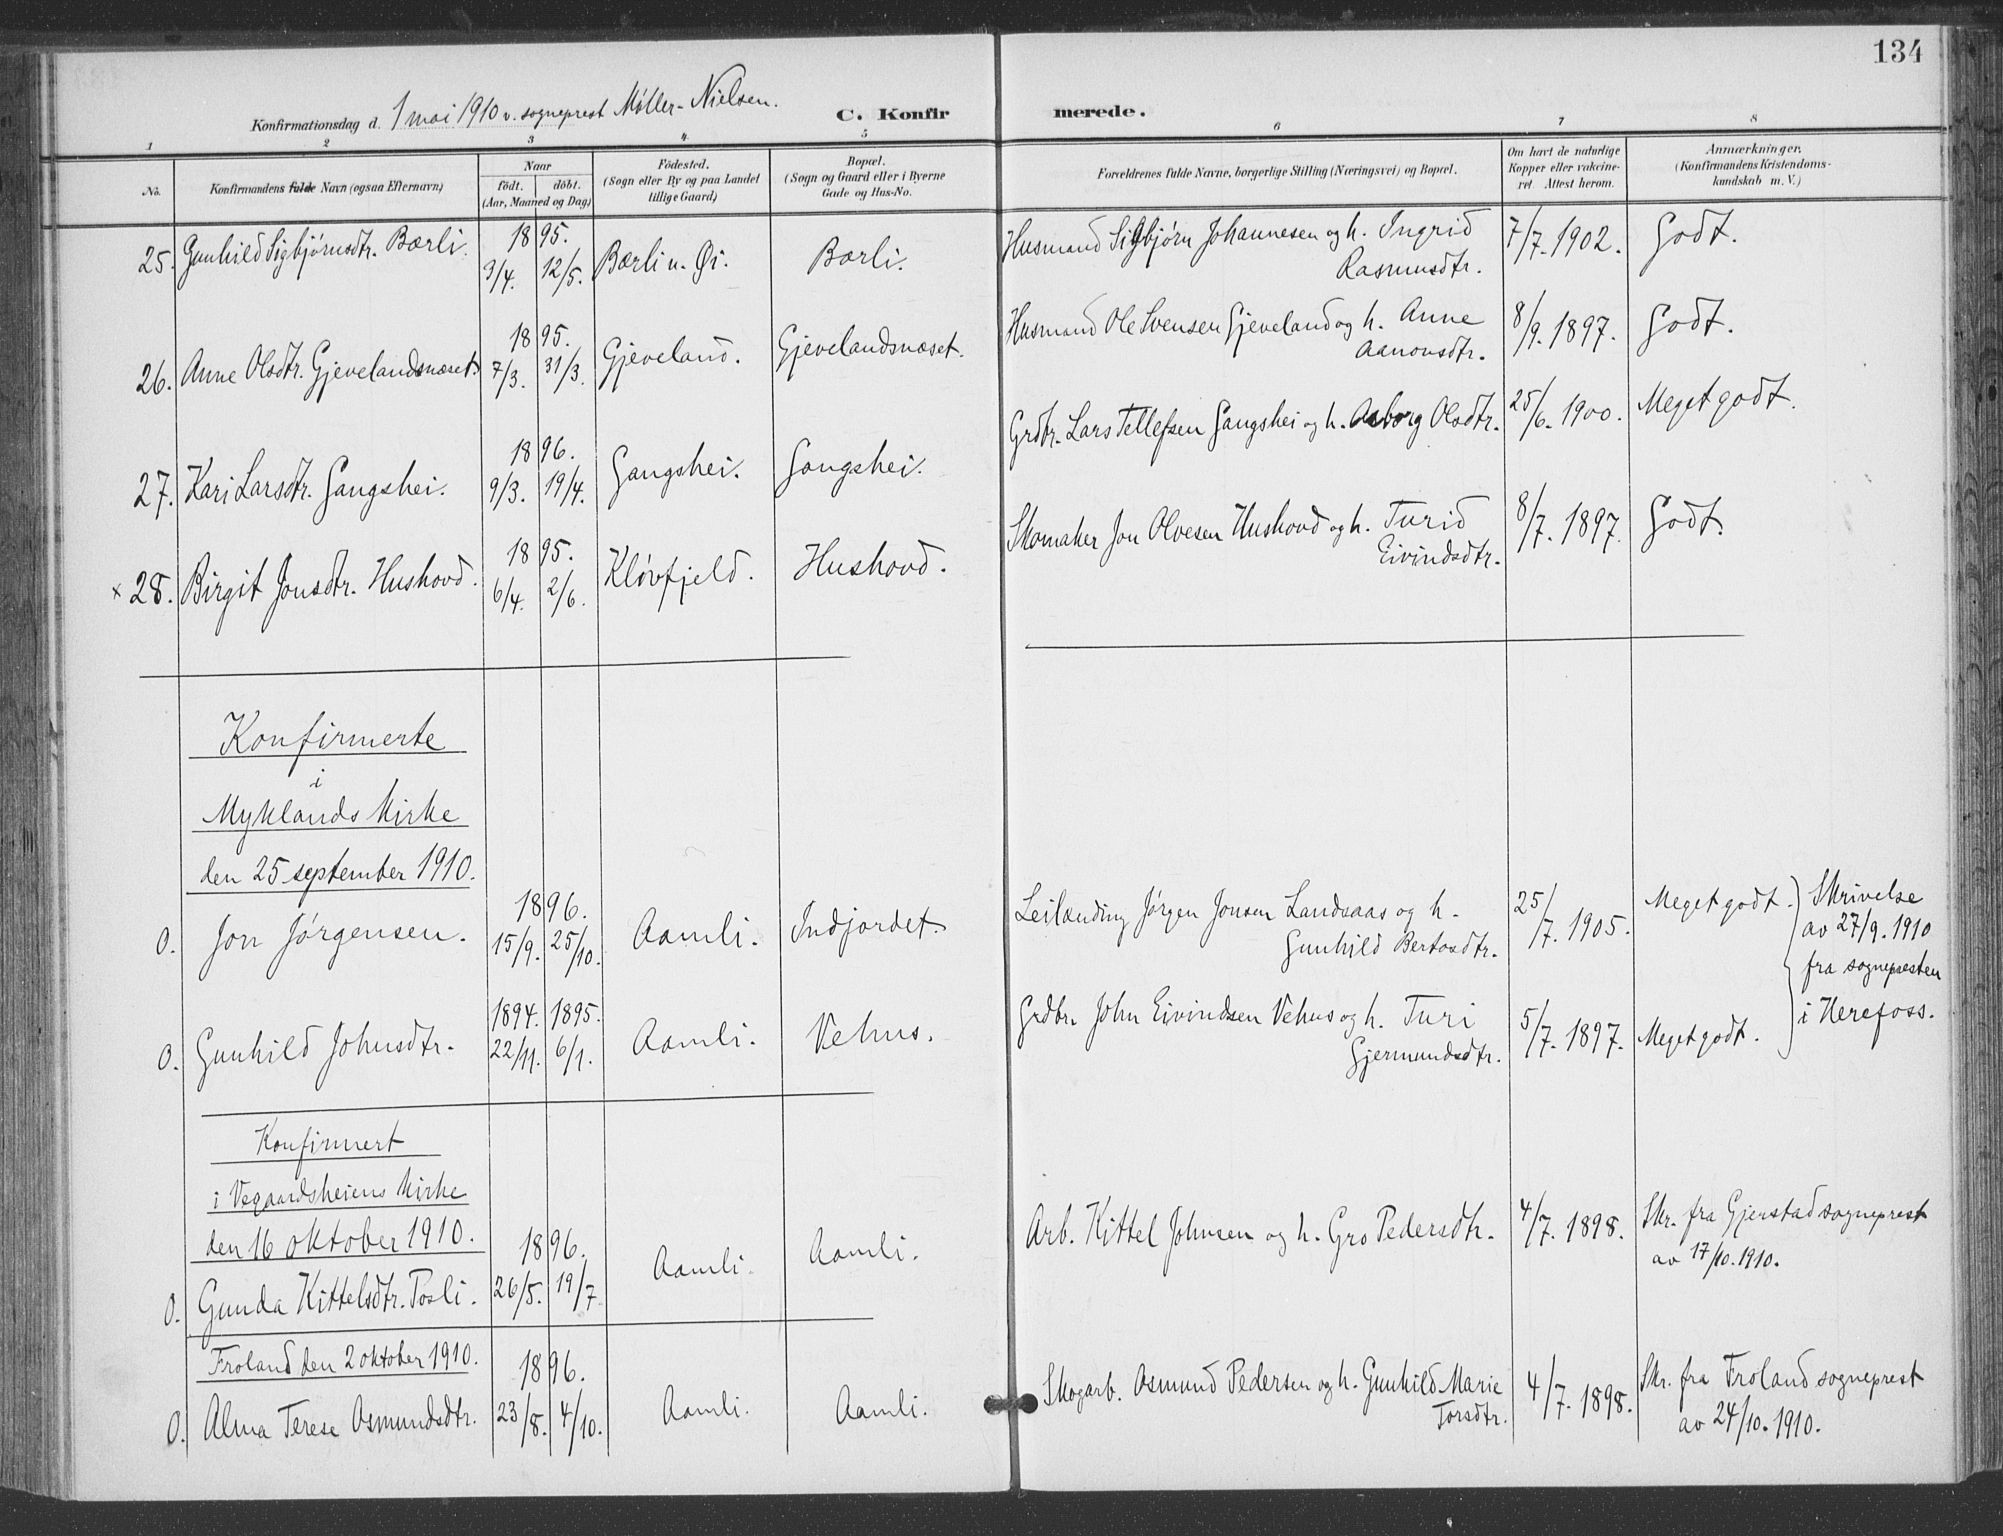 134
Konfirmationsdag d. 1 mai 1910 v. sogneprest Møller-Nielsen. C. Konfirmerede.
1 2 3 4 5 6 7 8
No. Konfirmandens fulde Navn (ogsaa Efternavn) Naar født. døbt. (Aar, Maaned og Dag) Fødested. (Sogn eller By og paa Landet tillige Gaard) Bopæl. (Sogn og Gaard eller i Byerne Gade og Hus-No. Forældrenes fulde Navne, borgerlige Stilling (Næringsvei) og Bopæl. Om havt de naturlige Kopper eller vakcineret. Attest herom. Anmærkninger. (Konfirmandens Kristendomskundskab m. V.)
25. Gunhild Sigbjørnsdtr. Bærli. 1895. 3/4. 12/5. Bærli u. Øi. Bærli. Husmand Sigbjørn Johannesen og h. Ingrid Rasmusdtr. 7/7. 1902. Godt.
26. Anne Olsdtr. Gjevelandsnæset. 1895. 7/3. 31/3. Gjeveland. Gjevelandsnæset. Husmand Ole Svensen Gjeveland og h. Anne Aanonsdtr. 8/9. 1897. Godt.
27. Kari Larsdtr. Gangshei. 1896. 9/3. 19/4. Gangshei. Gangshei. Grdbr. Lars Tellefsen Gangshei og h. Asborg Olsdtr. 25/6. 1900. Meget godt.
× 28. Birgit Jonsdtr. Hushovd. 1895. 6/4. 2/6. Kløvfjeld. Hushovd. Skomaker Jon Olvesen Hushovd og h. Turid Eivindsdtr. 8/7. 1897. Godt.
Konfirmerte
i
Myklands kirke
den 25 september 1910.
O. Jon Jørgensen. 1896. 15/9. 25/10. Aamli. Indjordet. Leilænding Jørgen Jonsen Landsaas og h. Gunhild Bertosdtr. 25/7. 1905. Meget godt. Skrivelse av 27/9. 1910 fra sognepresten i Herefoss.
O. Gunhild Johnsdtr. 1894. 22/11. 1895. 6/1. Aamli. Vehus. Grdbr. John Eivindsen Vehus og h. Turi Gjermundsdtr. 5/7. 1897. Meget godt.
Konfirmert
i Vegaardsheiens kirke
den 16 oktober 1910.
O. Gunda Kittelsdtr. Posli. 1896. 26/5. 19/7. Aamli. Aamli. Arb. Kittel Johnsen og h. Gro Pedersdtr. 4/7. 1898. Skr. fra Gjerstad sogneprest av 17/10. 1910.
Froland den 2 oktober 1910.
O. Alma Terese Osmundsdtr. 1896. 23/8. 4/10. Aamli. Aamli. Skogarb. Osmund Pedersen og h. Gunhild Marie Torsdtr. 4/7. 1898. Skr. fra Froland sogneprest av 24/10. 1910.